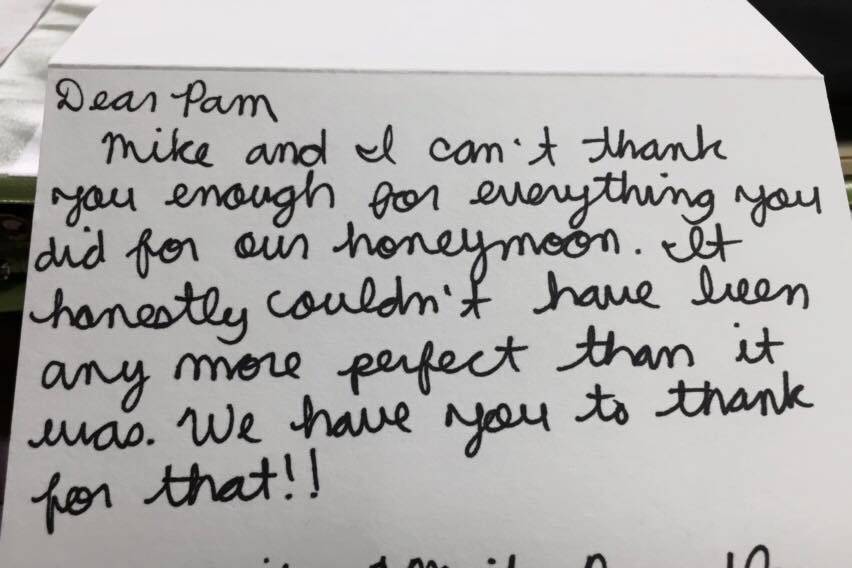 Dear Pam
Mike and I can't thank
you enough for everything you
did for our honeymoon. It
honestly couldn't have been
any more perfect than it
was. We have you to thank
for that!!